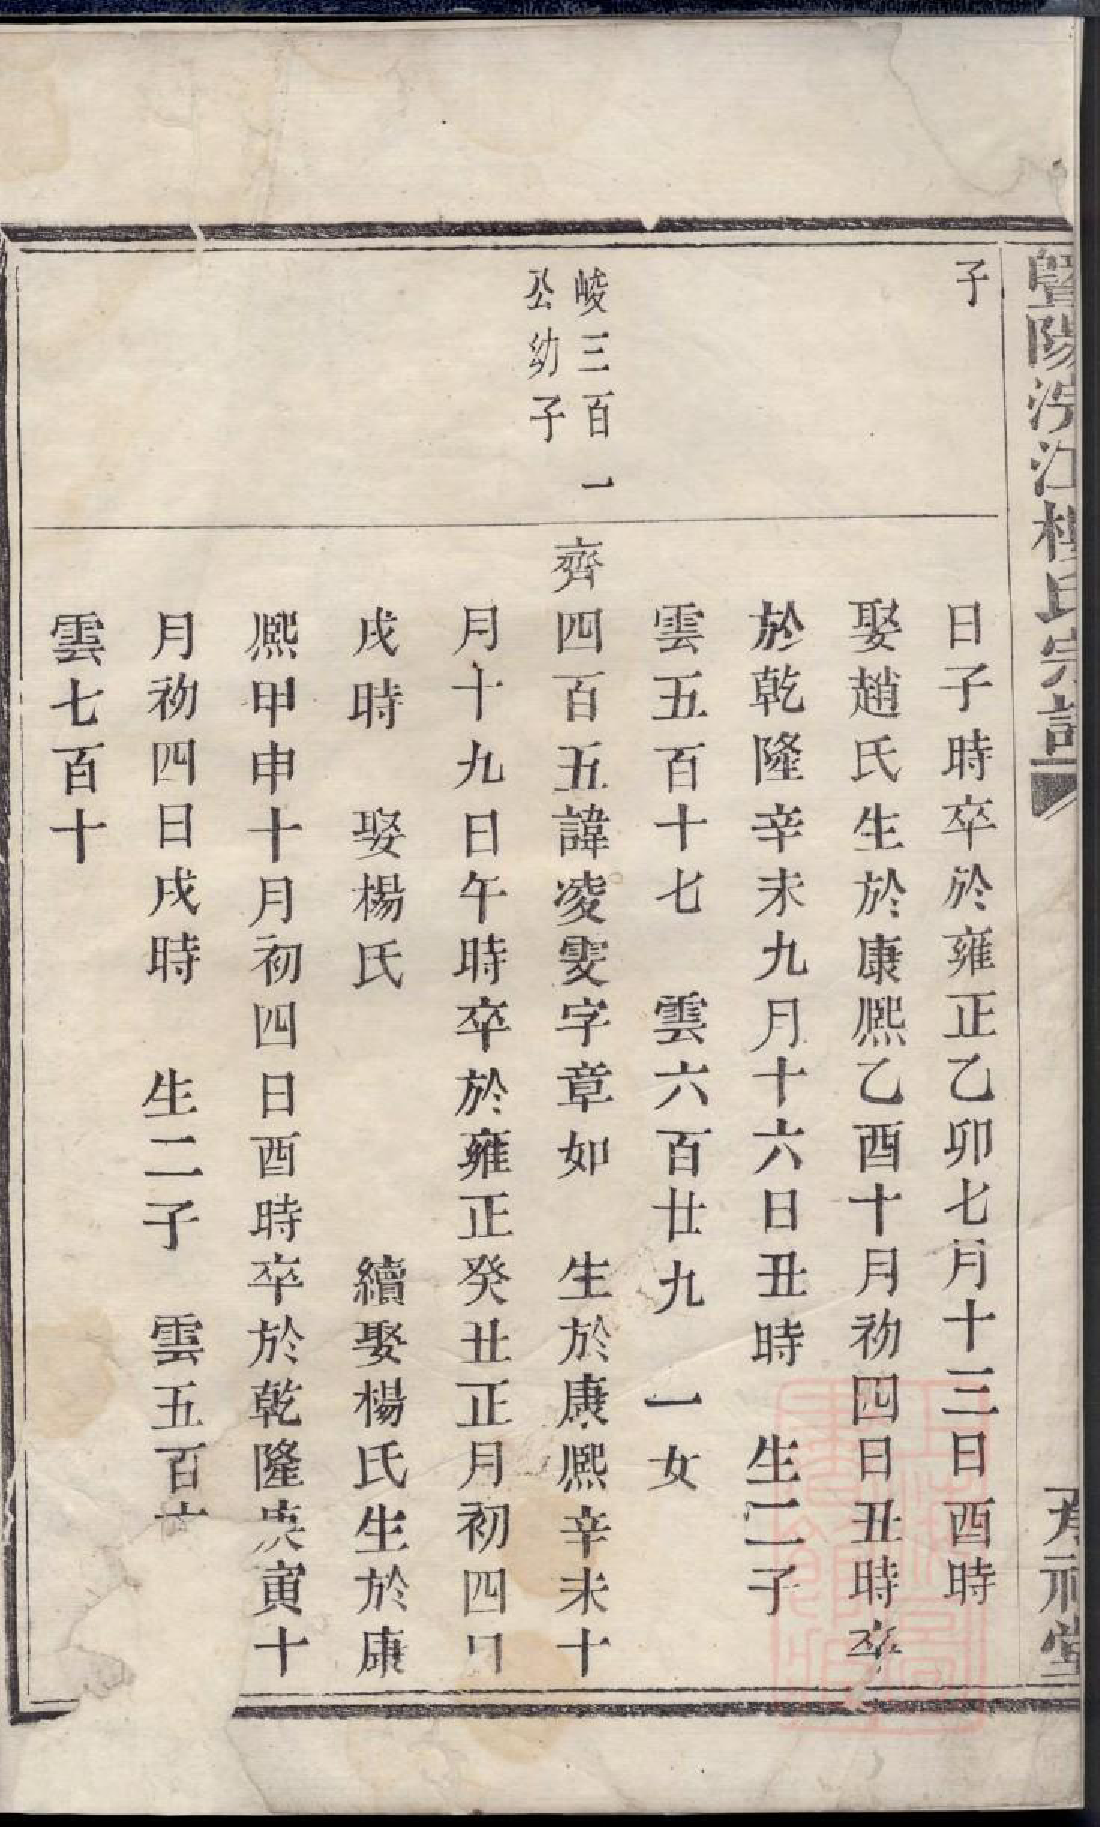 暨陽江楊氏宗譜
子
日子時卒於雍正乙卯七月十三日酉時
娶趙氏生於康熙乙酉十月初四日丑時卒
於乾隆辛未九月十六日丑時　生二子
雲五百十七　雲六百廿九　一女
峻三百一
公幼子
齊四百五諱凌雯字章如　生於康熙辛未十
月十九日午時卒於雍正癸丑正月初四日
戌時　娶楊氏　續娶楊氏生於康
熙甲申十月初四日酉時卒於乾隆庚寅十
月初四日戌時　生二子　雲五百
雲七百十
承祀堂